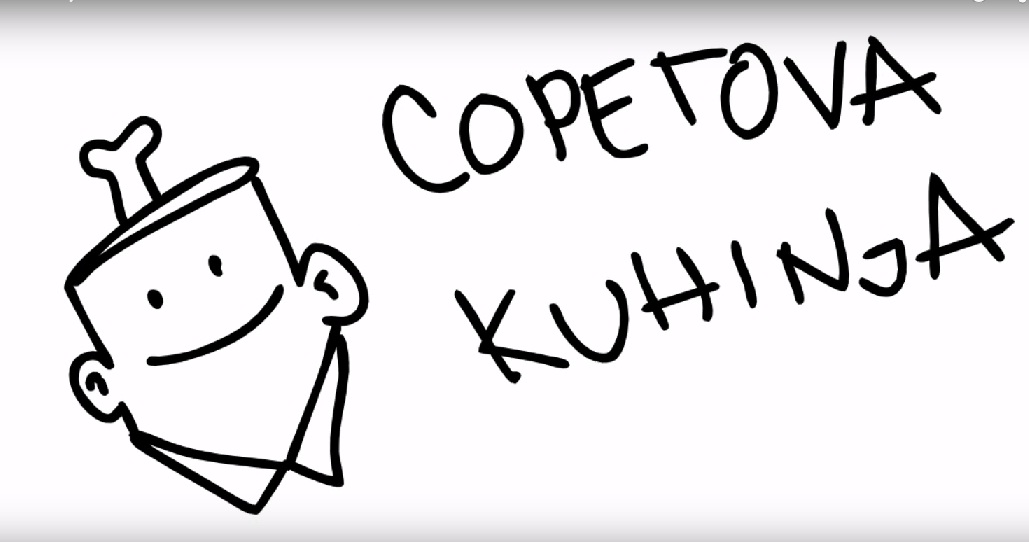 COPETOVA
KUHINJA